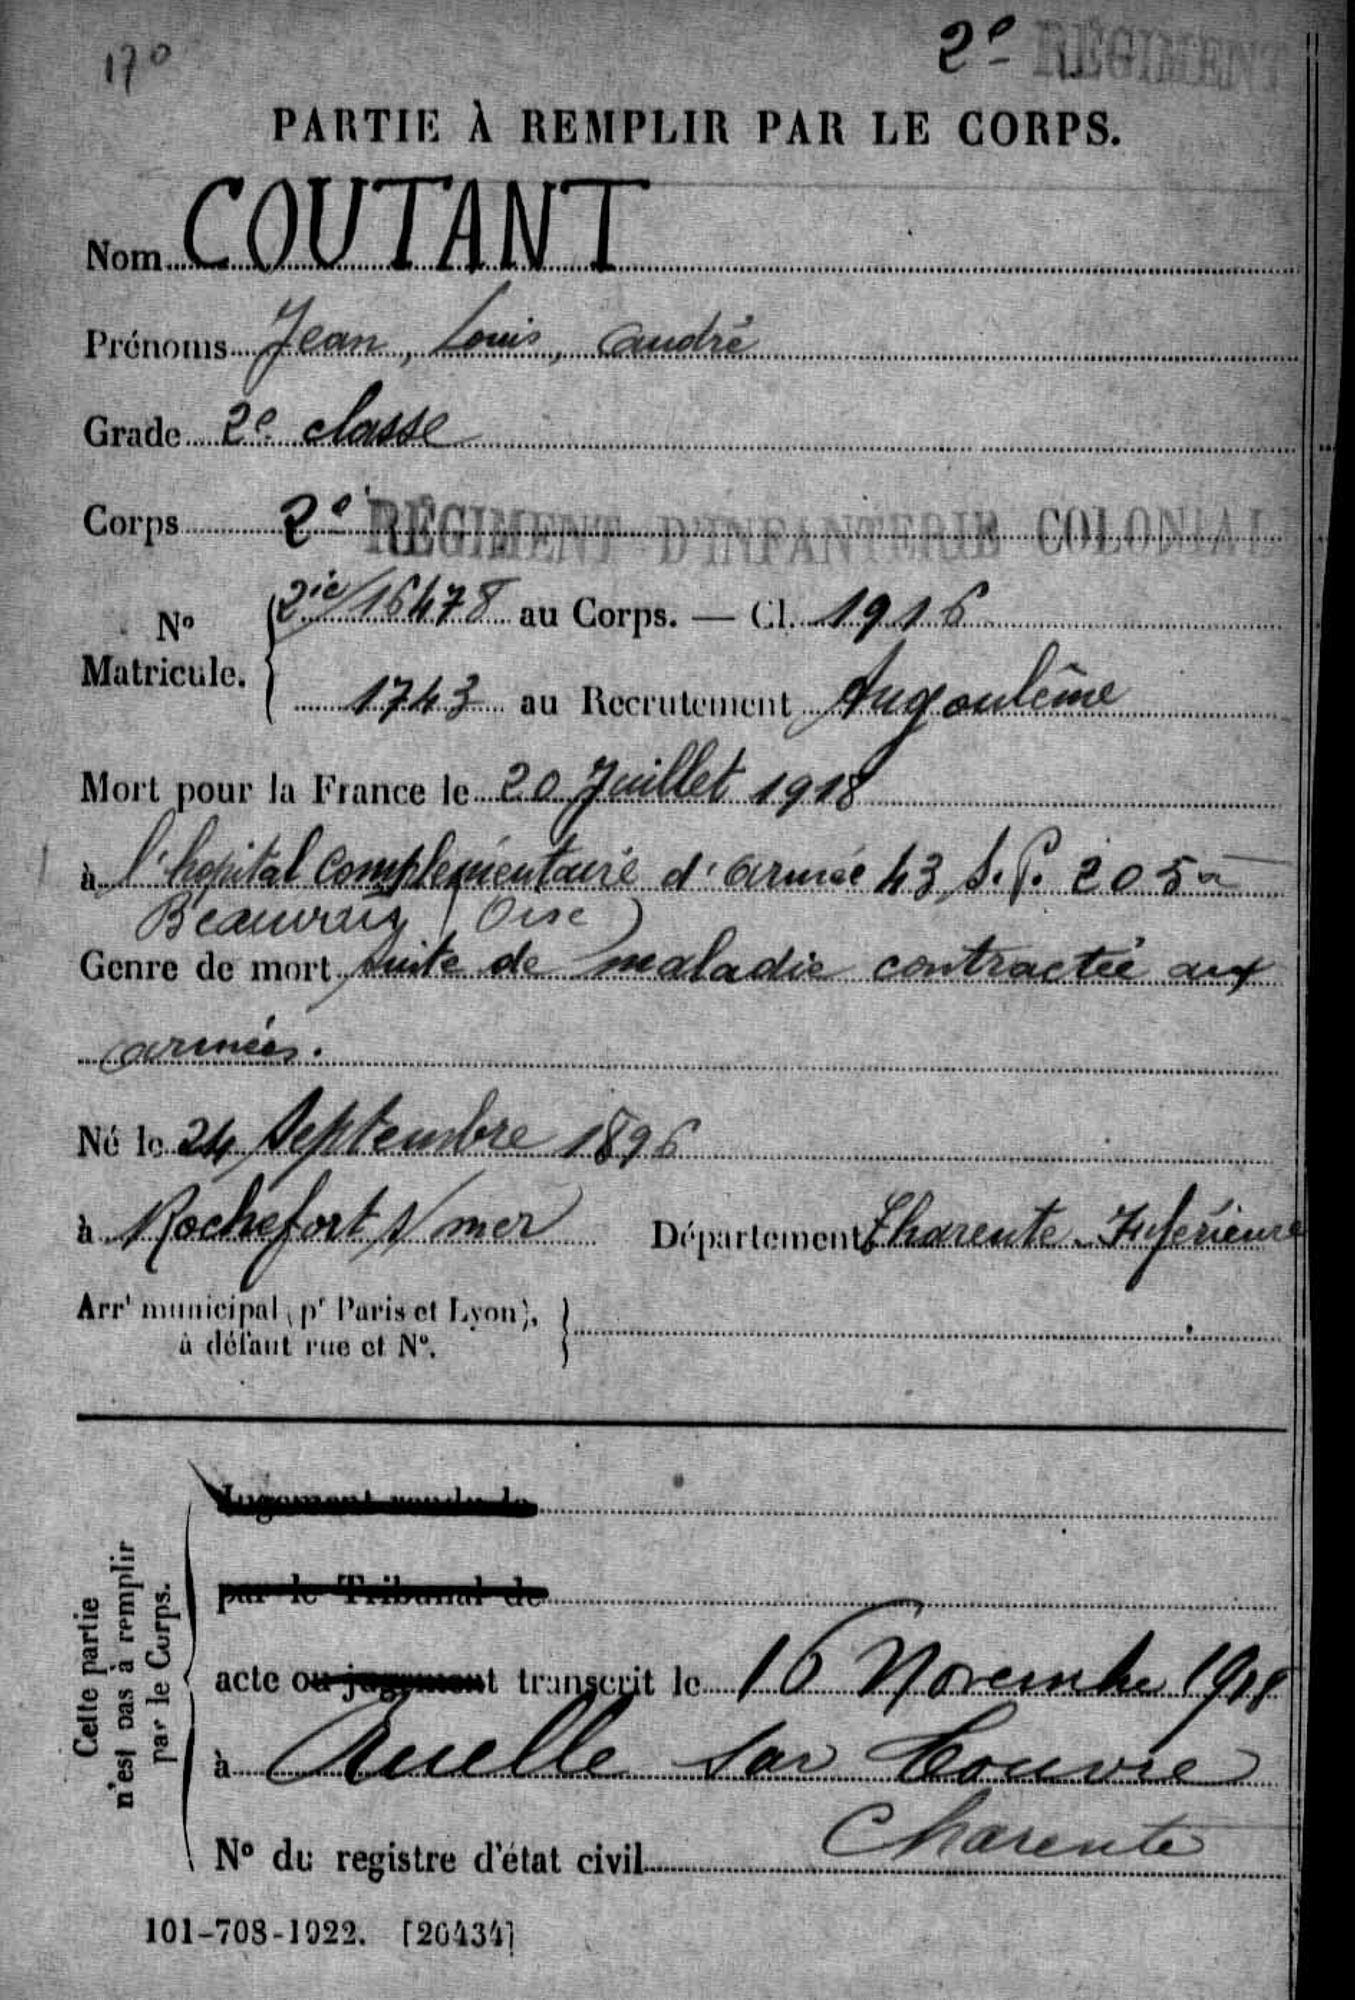 170
2e REGIMENT
PARTIE À REMPLIR PAR LE CORPS.
Nom COUTANT
Prénoms Jean, Louis, André
Grade 2e classe
Corps 2e REGIMENT D'INFANTERIE COLONIAL
No Matricule. { 2ic/16478 au Corps. — Cl. 1916
1743 au Recrutement Angoulême
Mort pour la France le 20 Juillet 1918
à l'hopital Complémentaire d'Armée 43 S.P. 205 à
Beauvais (Oise)
Genre de mort suite de maladie contractée aux
armées.
Né le 24 Septembre 1896
à Rochefort s/mer Département Charente-Inférieure
Arrt municipal (pr Paris et Lyon),
à défaut rue et No. }
Cette partie
n'est pas à remplir
par le Corps.
Jugement rendu le
par le Tribunal de
acte ou jugement transcrit le 16 Novembre 1918
à Ruelle sur Touvre
Charente
No du registre d'état civil
101-708-1922. [26434]